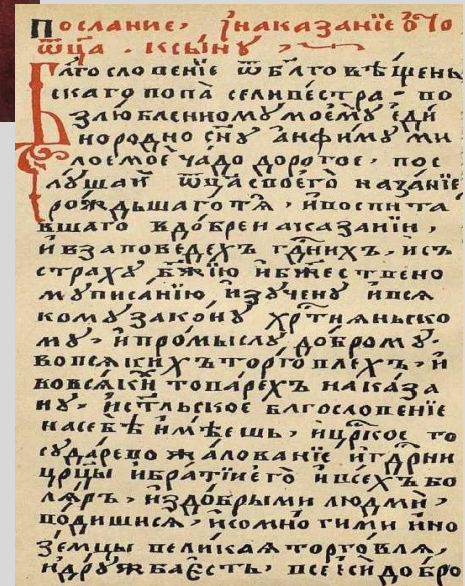 Послание, и наказание ѿ
ѿца . к сыну ,
Бл҃гословение ѿ бл҃говѣщень
скаго попа селивестра . во
злюбленному моему еди
нородно сн҃у анфиму ми
лое мое чадо дорогое , пос
лушай ѿца своего наказание
рождьшаго тя , и воспита
вшаго в добре наказании ,
и в заповедехъ гд҃нихъ , и съ
страху бж҃ию и бжествено
му писанию , изучену и вся
кому закону хрⷭ҇тияньско
му , и промыслу доброму .
во всякихъ торговлехъ , и
во всяки товарехъ наказа
ну , и ст҃льское благословение
на себѣ имѣешь , и цр҃кое го
сударево жалование и гдⷭ҇рни
цр҃цы и братии его и всехъ бо
ляръ , и з добрыми людми ,
водишися , и со многими ино
земцы великая торговля ,
и дружба есть , все еси добро